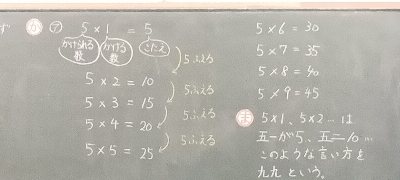 ず
か ㋐ 5 × 1 = 5
かけられる数 かける数 こたえ
5ふえる
5 × 2 = 10
5ふえる
5 × 3 = 15
5ふえる
5 × 4 = 20
5ふえる
5 × 5 = 25
5 × 6 = 30
5 × 7 = 35
5 × 8 = 40
5 × 9 = 45
ま 5×1、5×2… は
五一が5、五二10…
このような言い方を
九九という。